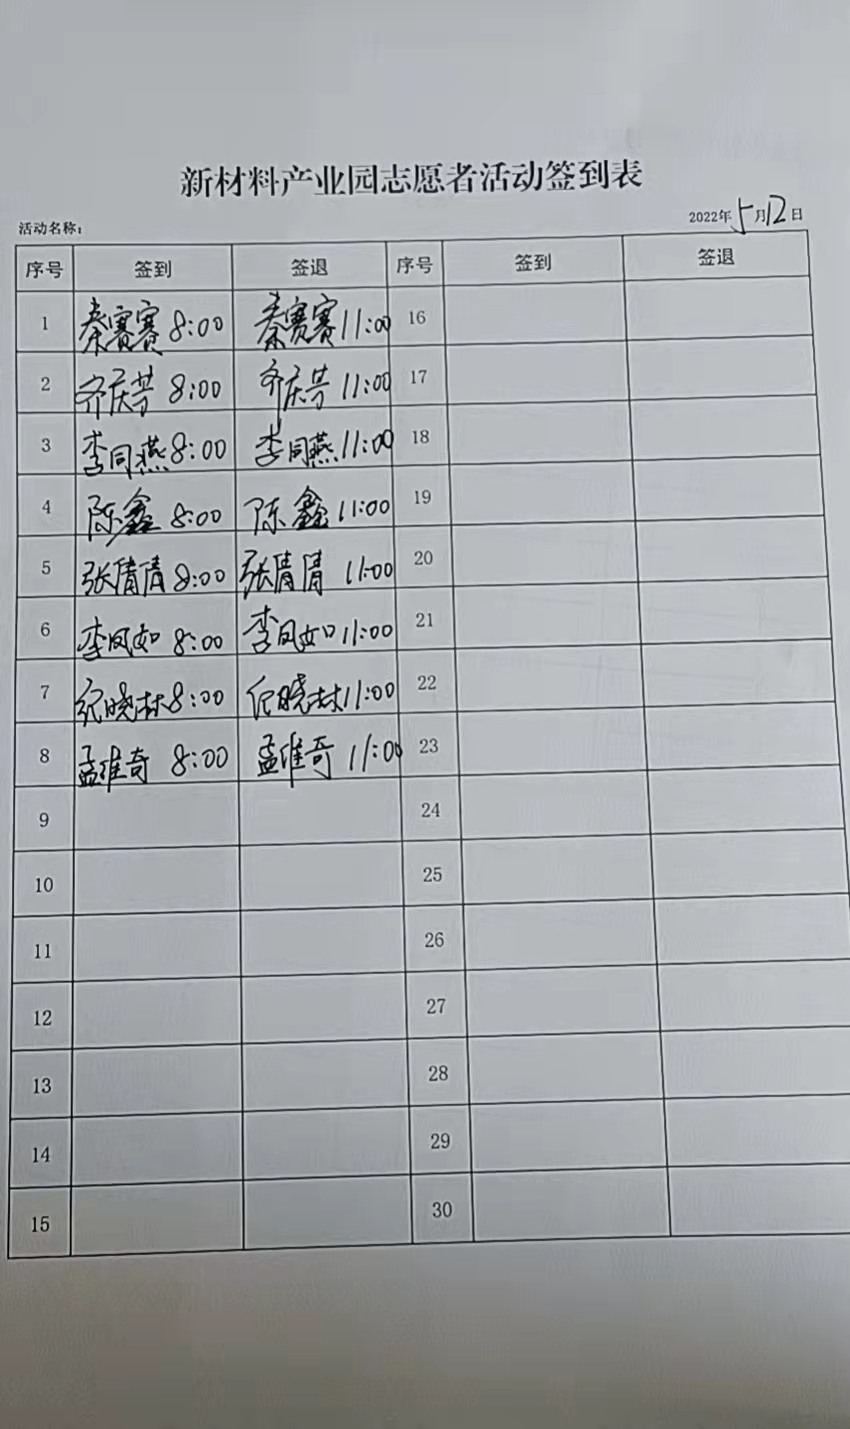 新材料产业园志愿者活动签到表
活动名称: 2022年5月12日
序号 签到 签退 序号 签到 签退
1 秦赛赛 8:00 秦赛赛 11:00 16
2 齐庆芳 8:00 齐庆芳 11:00 17
3 李同燕 8:00 李同燕 11:00 18
4 陈鑫 8:00 陈鑫 11:00 19
5 张倩倩 8:00 张倩倩 11:00 20
6 李凤如 8:00 李凤如 11:00 21
7 纪晓林 8:00 纪晓林 11:00 22
8 孟维奇 8:00 孟维奇 11:00 23
9 24
10 25
11 26
12 27
13 28
14 29
15 30